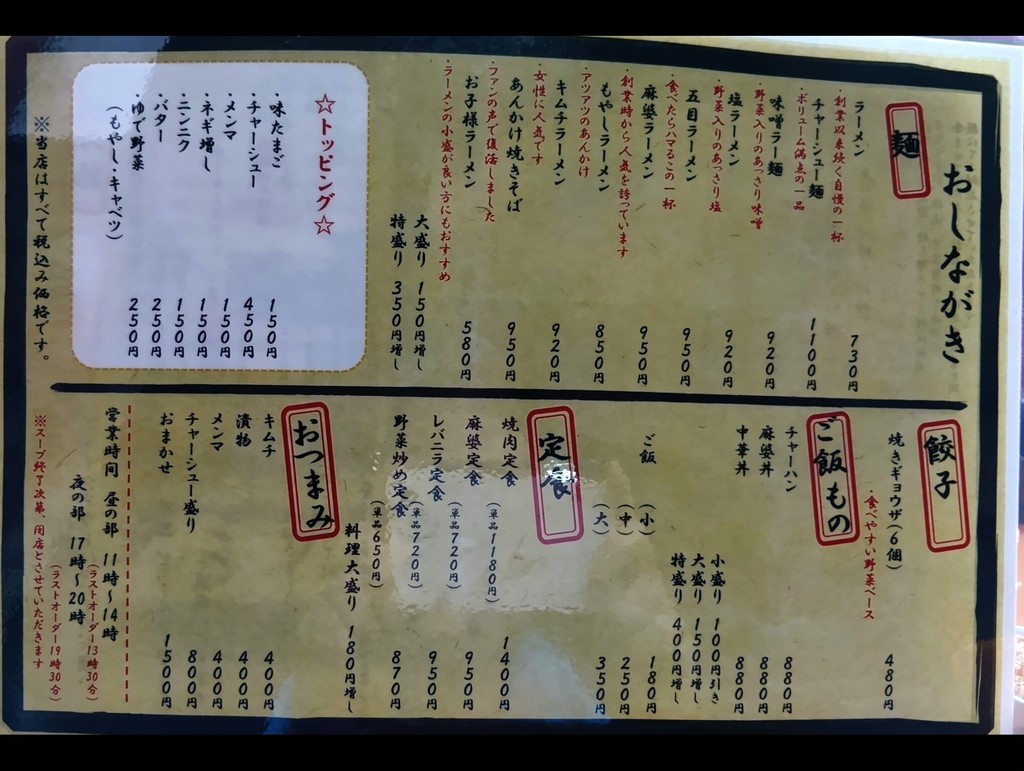 おしながき
麺
ラーメン 730円
・創業以来続く自慢の一杯
チャーシュー麺 1100円
・ボリューム満点の一品
味噌ラーメン 920円
・野菜入りのあっさり味噌
塩ラーメン 920円
・野菜入りのあっさり塩
五目ラーメン 950円
・食べたらハマるこの一杯
麻婆ラーメン 950円
・創業時から人気を誇っています
もやしラーメン 850円
・アツアツのあんかけ
キムチラーメン 920円
・女性に人気です
あんかけ焼きそば 950円
・ファンの声で復活しました
お子様ラーメン 580円
・ラーメンの小盛が良い方にもおすすめ
大盛り 150円増し
特盛り 350円増し
☆トッピング☆
・味たまご 150円
・チャーシュー 450円
・メンマ 150円
・ネギ増し 150円
・ニンニク 150円
・バター 250円
・ゆで野菜 250円
(もやし・キャベツ)
※当店はすべて税込み価格です。
餃子
焼きギョウザ(6個) 480円
・食べやすい野菜ベース
ご飯もの
チャーハン 880円
麻婆丼 880円
中華丼 880円
小盛り 100円引き
大盛り 150円増し
特盛り 400円増し
ご飯 (小) 180円
(中) 250円
(大) 350円
定食
焼肉定食 1400円
(単品1180円)
麻婆定食 950円
(単品720円)
レバニラ定食 950円
(単品720円)
野菜炒め定食 870円
(単品650円)
料理大盛り 180円増し
おつまみ
キムチ 400円
漬物 400円
メンマ 400円
チャーシュー盛り 800円
おまかせ 1500円
営業時間 昼の部 11時~14時
(ラストオーダー13時30分)
夜の部 17時~20時
(ラストオーダー19時30分)
※スープ終了次第、閉店とさせていただきます